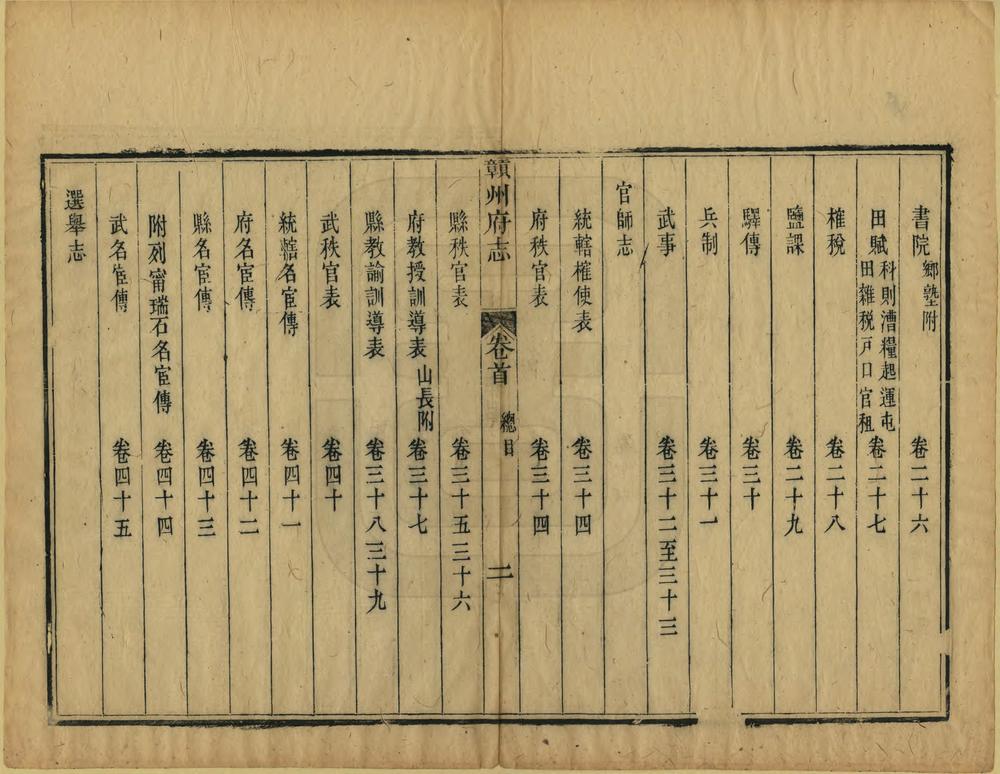 書院鄉塾附 卷二十六
田賦科則漕糧起運屯田雜稅戸口官租 卷二十七
榷稅 卷二十八
鹽課 卷二十九
驛傳 卷三十
兵制 卷三十一
武事 卷三十二至三十三
官師志
統轄榷使表 卷三十四
府秩官表 卷三十四
贛州府志 卷首 總目 二
縣秩官表 卷三十五三十六
府教授訓導表山長附 卷三十七
縣教諭訓導表 卷三十八三十九
武秩官表 卷四十
統轄名宦傳 卷四十一
府名宦傳 卷四十二
縣名宦傳 卷四十三
附列甯瑞石名宦傳 卷四十四
武名宦傳 卷四十五
選舉志